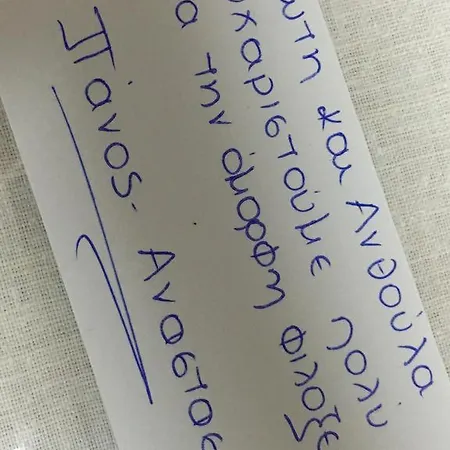 ωτη και Ανθούλα
υχαριστούμε πολύ
α την όμορφη φιλοξε
Πάνος - Αναστασ